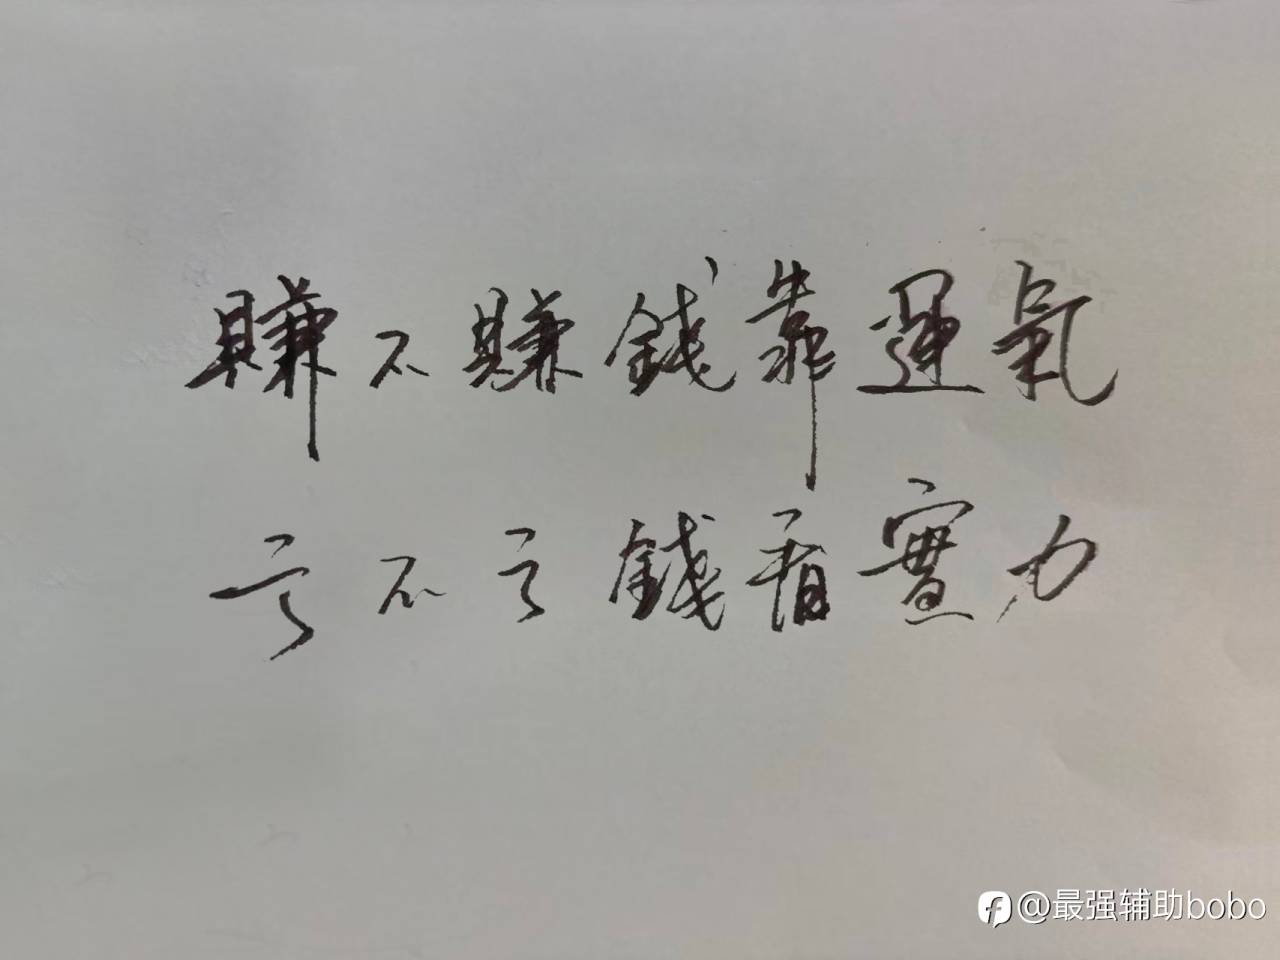 賺不賺錢靠運氣
亏不亏錢看實力
@最强辅助bobo